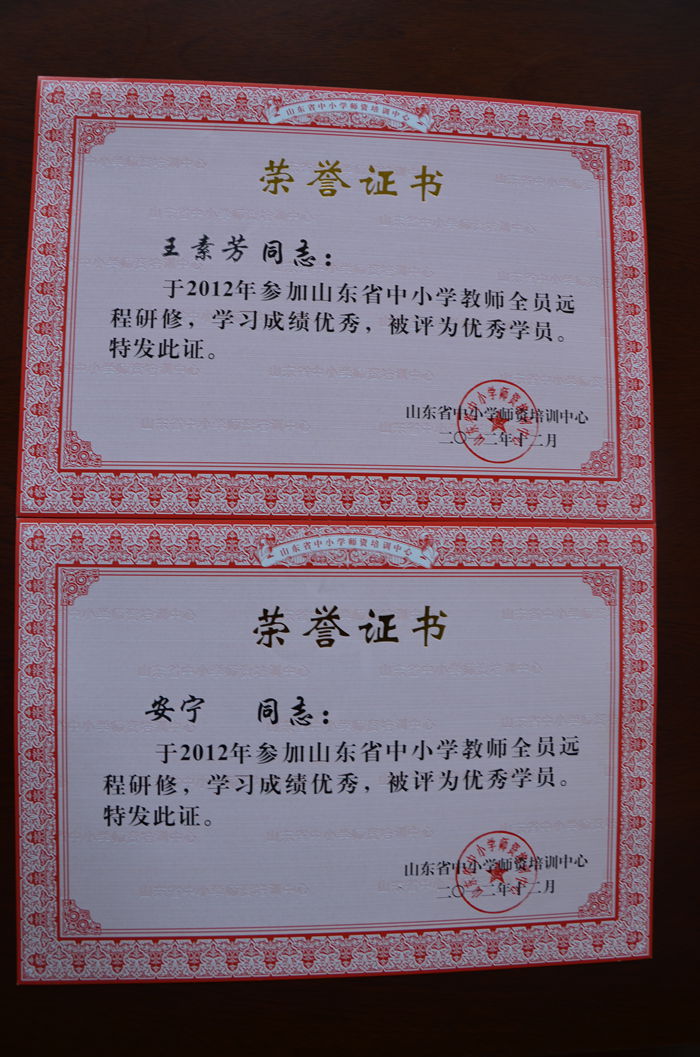 山东省中小学师资培训中心
荣誉证书
王素芳同志：
于2012年参加山东省中小学教师全员远
程研修，学习成绩优秀，被评为优秀学员。
特发此证。
山东省中小学师资培训中心
二〇一二年十二月
山东省中小学师资培训中心
荣誉证书
安宁 同志：
于2012年参加山东省中小学教师全员远
程研修，学习成绩优秀，被评为优秀学员。
特发此证。
山东省中小学师资培训中心
二〇一二年十二月